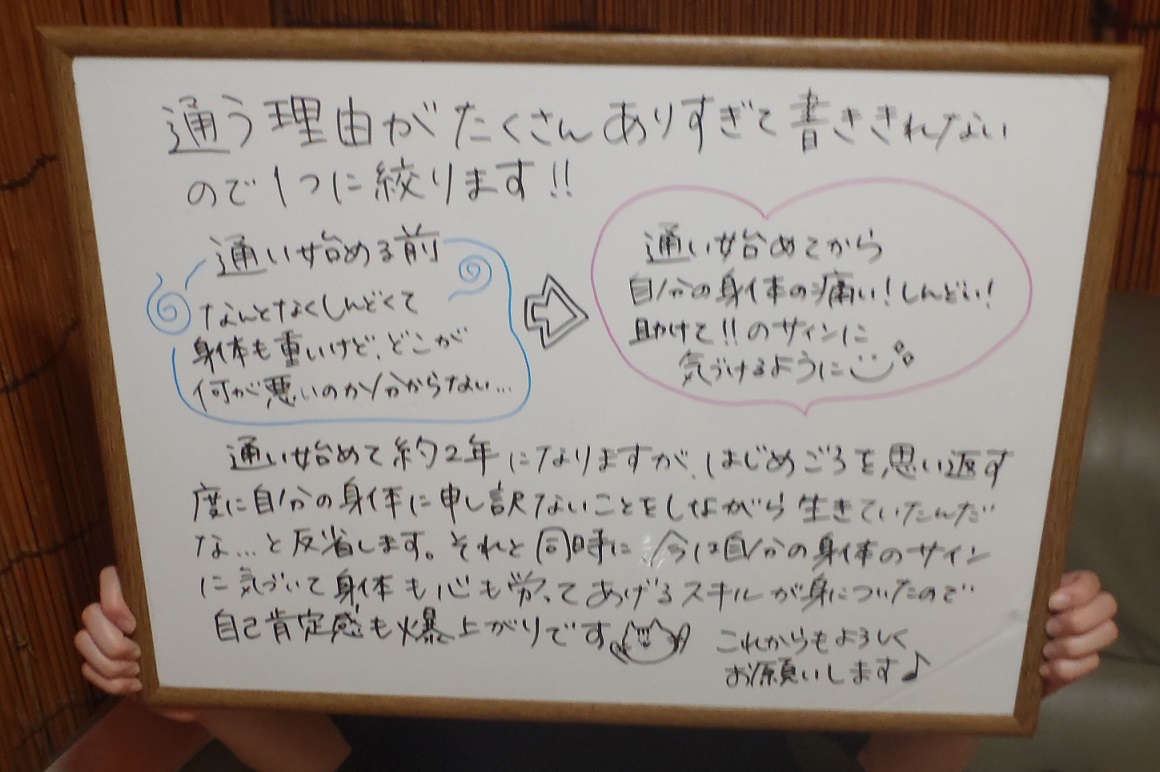 通う理由がたくさんありすぎて書ききれない
ので1つに絞ります!!
通い始める前
なんとなくしんどくて
身体も重いけど、どこが
何が悪いのか分からない…
通い始めてから
自分の身体の痛い!しんどい!
助けて!!のサインに
気づけるように
通い始めて約2年になりますが、はじめごろを思い返す
度に自分の身体に申し訳ないことをしながら生きていたんだ
な…と反省します。それと同時に今は自分の身体のサイン
に気づいて身体も心も労ってあげるスキルが身についたので
自己肯定感も爆上がりです
これからもよろしく
お願いします♪